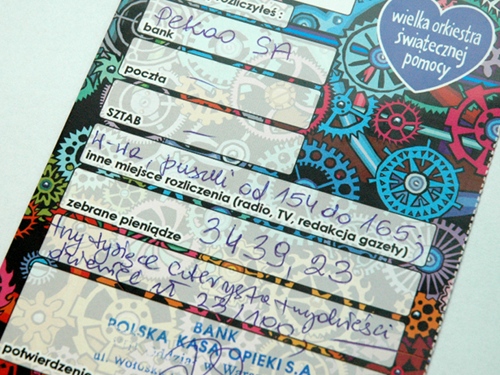 rozliczyłeś:
Pekao SA
bank
wielka orkiestra
świątecznej
pomocy
—
poczta
—
SZTAB
puszki od 154 do 165
inne miejsce rozliczenia (radio, TV, redakcja gazety)
3439,23
zebrane pieniądze
trzy tysiące czterysta trzydzieści
dziewięć zł 23/100
BANK
POLSKA KASA OPIEKI S.A.
w War
ul. Wołos
potwierdzenie